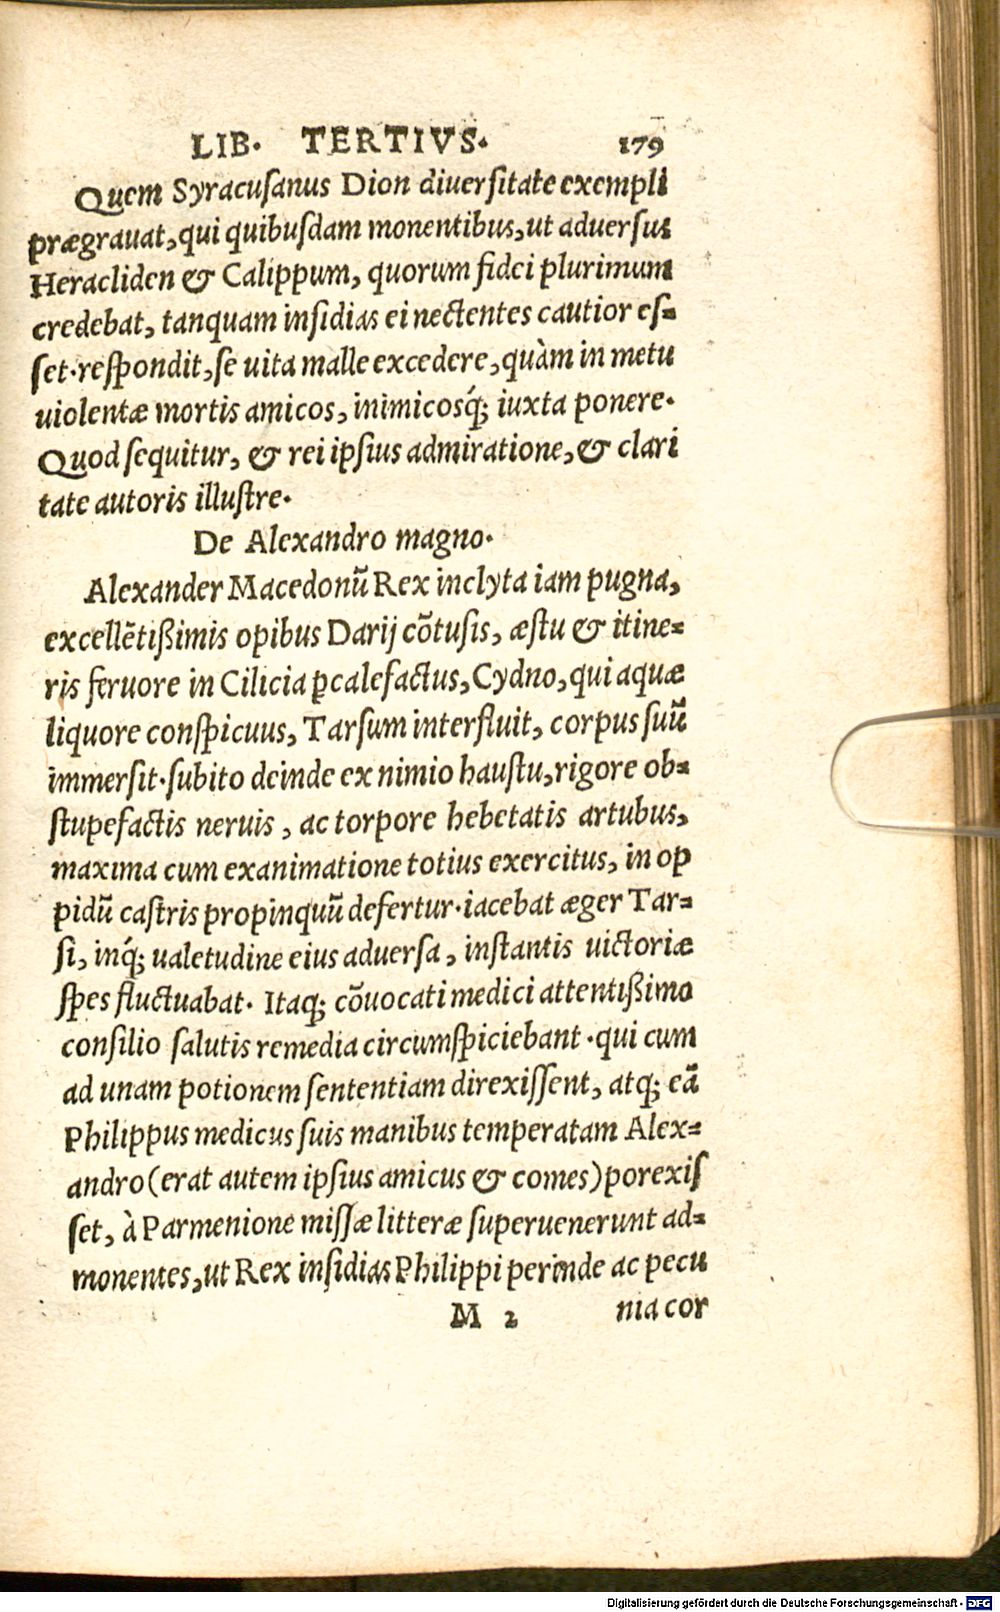 LIB. TERTIVS. 179
Quem Syracusanus Dion diuersitate exempli
prægrauat, qui quibusdam monentibus, ut aduersus
Heracliden & Calippum, quorum fidei plurimum
credebat, tanquam insidias ei nectentes cautior es-
set. respondit, se uita malle excedere, quàm in metu
uiolentæ mortis amicos, inimicosq́; iuxta ponere.
Quod sequitur, & rei ipsius admiratione, & clari
tate autoris illustre.
De Alexandro magno.
Alexander Macedonũ Rex inclyta iam pugna,
excellẽtißimis opibus Darij cõtusis, æstu & itine-
ris feruore in Cilicia ꝑcalefactus, Cydno, qui aquæ
liquore conspicuus, Tarsum interfluit, corpus suũ
immersit. subito deinde ex nimio haustu, rigore ob-
stupefactis neruis, ac torpore hebetatis artubus,
maxima cum exanimatione totius exercitus, in op
pidũ castris propinquũ defertur. iacebat æger Tar-
si, inq́; ualetudine eius aduersa, instantis uictoriæ
spes fluctuabat. Itaq; cõuocati medici attentißimo
consilio salutis remedia circumspiciebant. qui cum
ad unam potionem sententiam direxissent, atq; eã
Philippus medicus suis manibus temperatam Alex-
andro (erat autem ipsius amicus & comes) porexis
set, à Parmenione missæ litteræ superuenerunt ad-
monentes, ut Rex insidias Philippi perinde ac pecu
M 2 nia cor
Digitalisierung gefördert durch die Deutsche Forschungsgemeinschaft - DFG